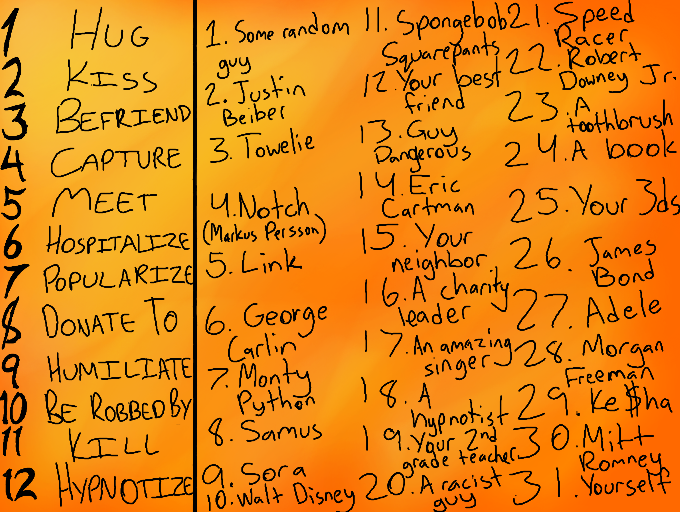 1 HUG
2 KISS
3 BEFRIEND
4 CAPTURE
5 MEET
6 HOSPITALIZE
7 POPULARIZE
8 DONATE TO
9 HUMILIATE
10 BE ROBBED BY
11 KILL
12 HYPNOTIZE
1. Some random
guy
2. Justin
Beiber
3. Towelie
4. Notch
(Markus Persson)
5. Link
6. George
Carlin
7. Monty
Python
8. Samus
9. Sora
10. Walt Disney
11. Spongebob
Squarepants
12. Your best
friend
13. Guy
Dangerous
14. Eric
Cartman
15. Your
neighbor
16. A charity
leader
17. An amazing
singer
18. A
hypnotist
19. Your 2nd
grade teacher
20. A racist
guy
21. Speed
Racer
22. Robert
Downey Jr.
23. A
toothbrush
24. A book
25. Your 3ds
26. James
Bond
27. Adele
28. Morgan
Freeman
29. Ke$ha
30. Mitt
Romney
31. Yourself